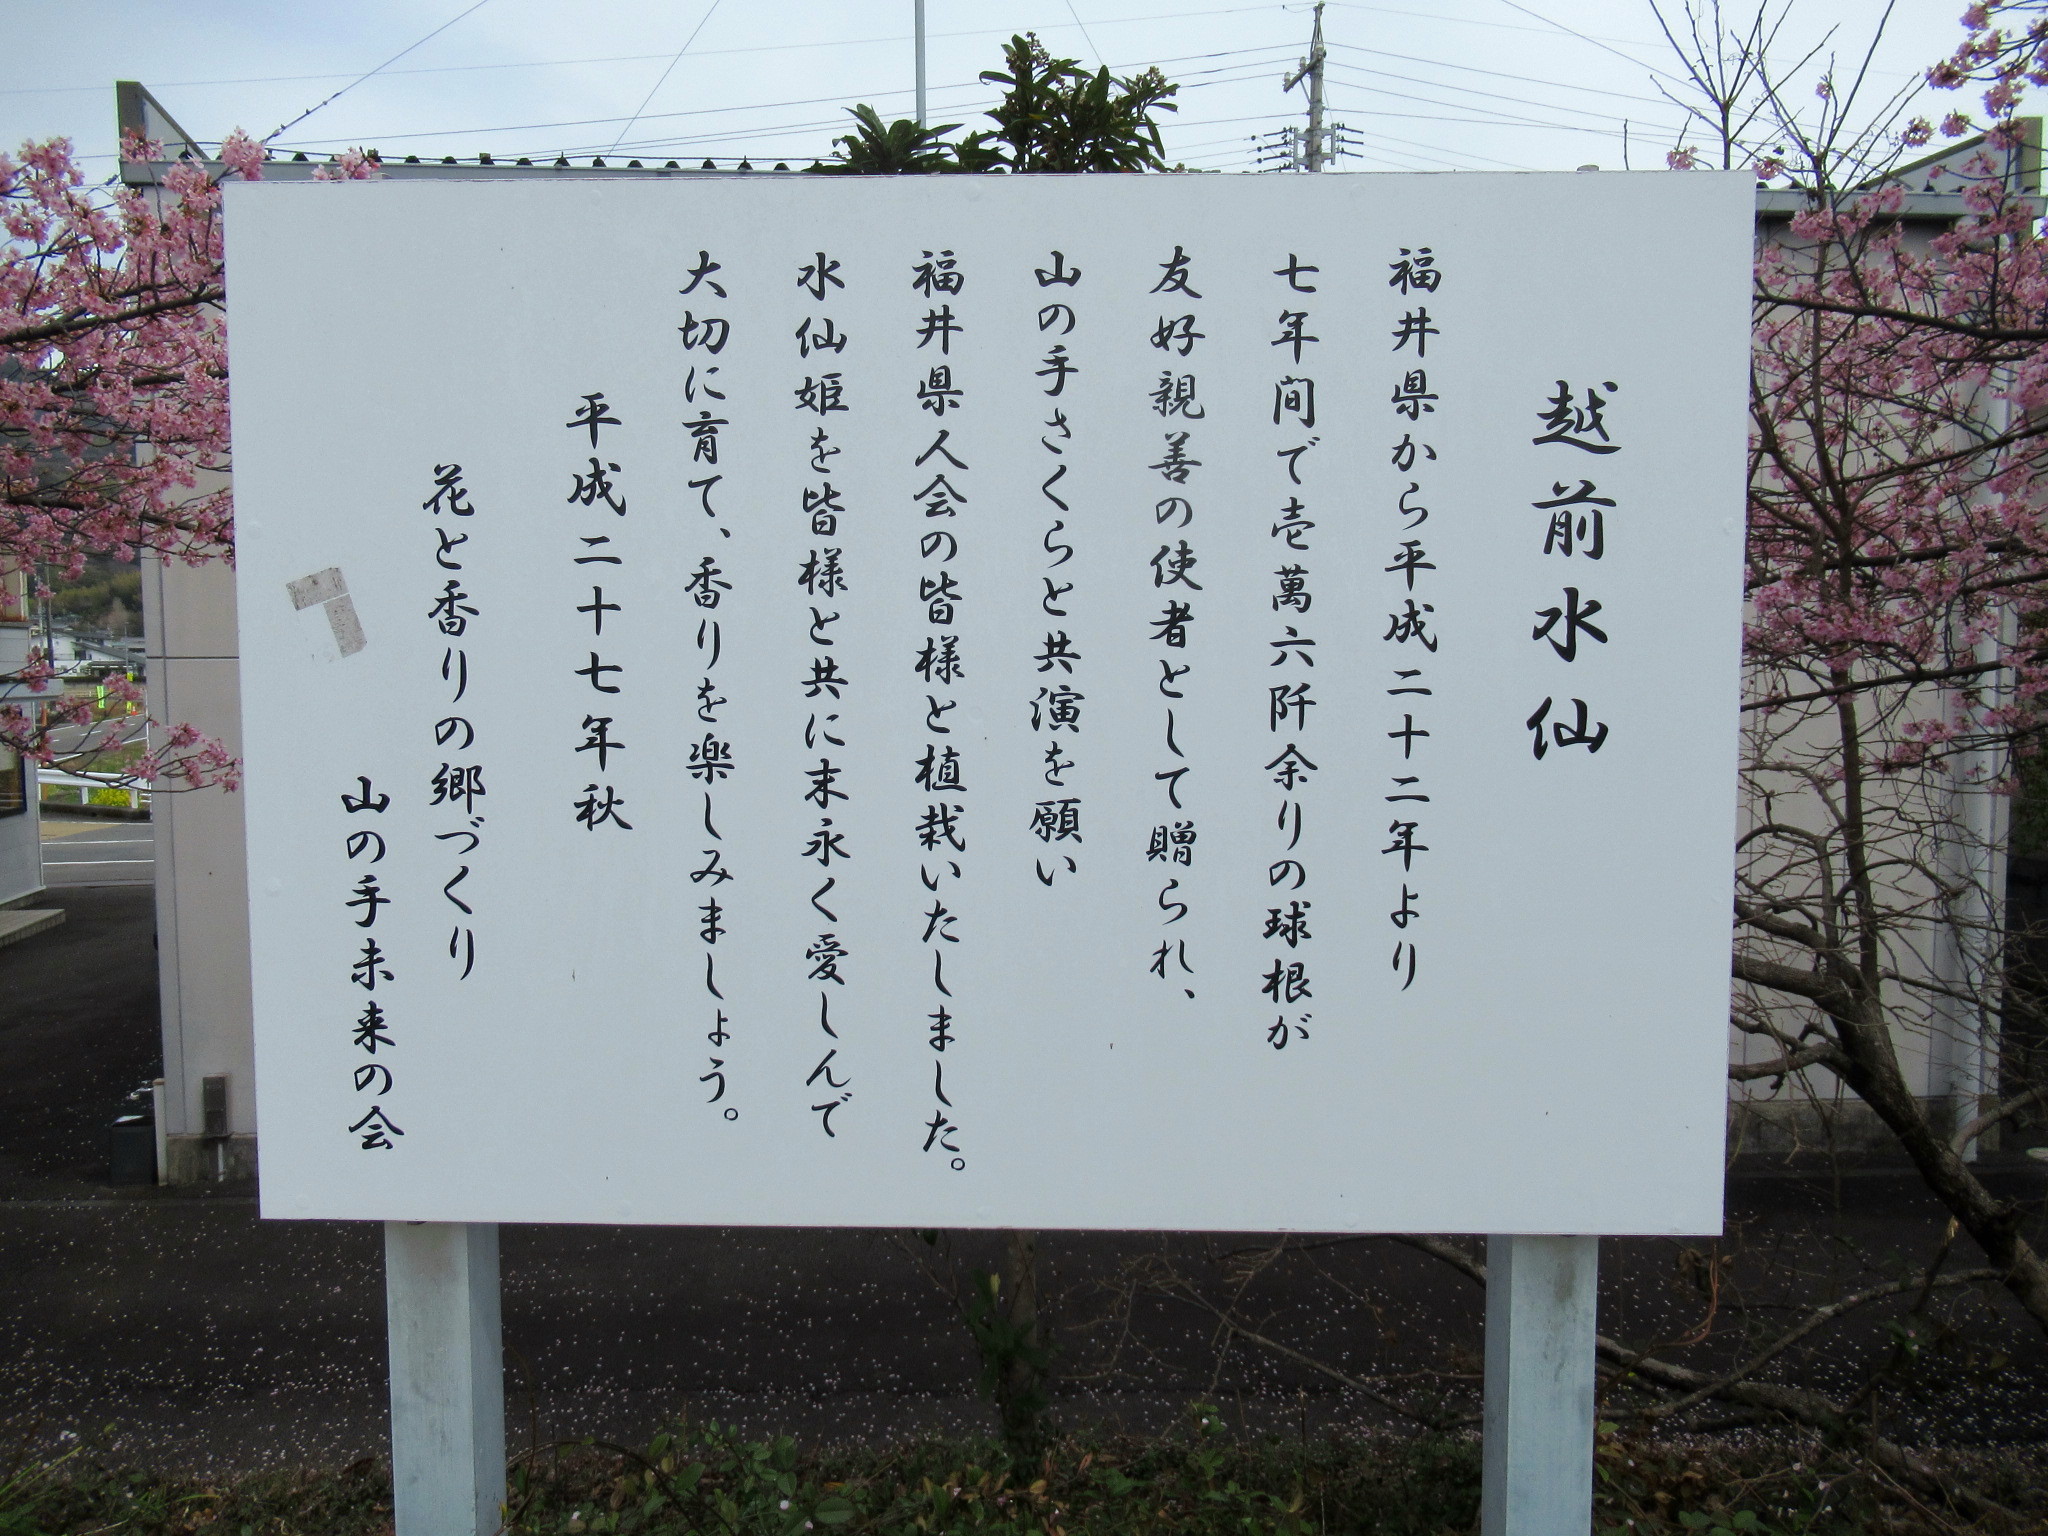 越前水仙
福井県から平成二十二年より
七年間で壱萬六阡余りの球根が
友好親善の使者として贈られ、
山の手さくらと共演を願い
福井県人会の皆様と植栽いたしました。
水仙姫を皆様と共に末永く愛しんで
大切に育て、香りを楽しみましょう。
平成二十七年秋
花と香りの郷づくり
山の手未来の会